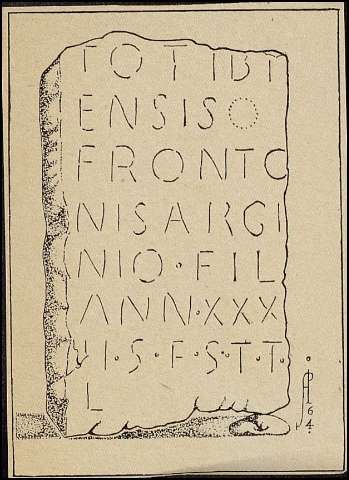 TOTIBI
ENSIS
FRONTO
NISARGI
NIO·FIL
ANN·XXX
II·S·F·S·T·T·
L
64